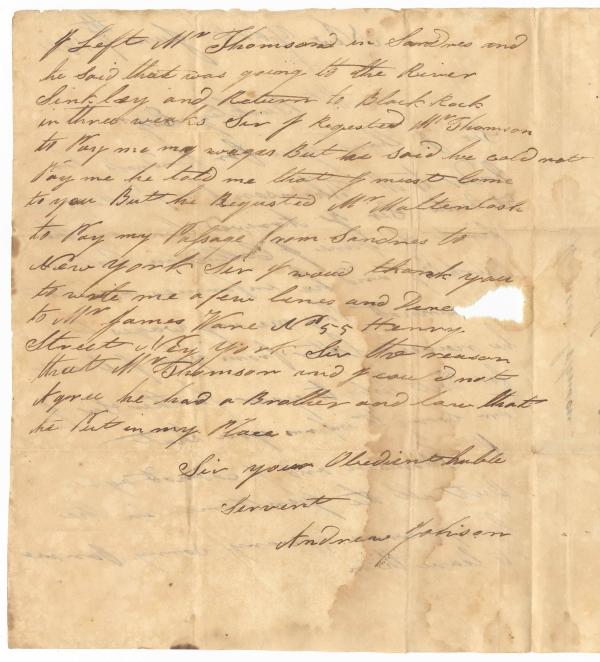 I Left Mr Thomson in Sandres and
he said that was going to the River
Sinklaey and Return to Black Rock
in three weaks Sir I Requested Mr Thomson
to Pay me my wages But he said he cold not
Pay me he told me that I must Come
to you But he Requsted Mr
to Pay my Passage from Sandres to
New York Sir I woud thank you
to write me a few lines and Dire
to Mr James Ware No 55 Henry
Street N Ey York Sir the reason
that Mr Thomson and I cou d not
Agree he had a Brother and law that
he Put in my Place
Sir your Obedient huble
Servent
Andrew Johison